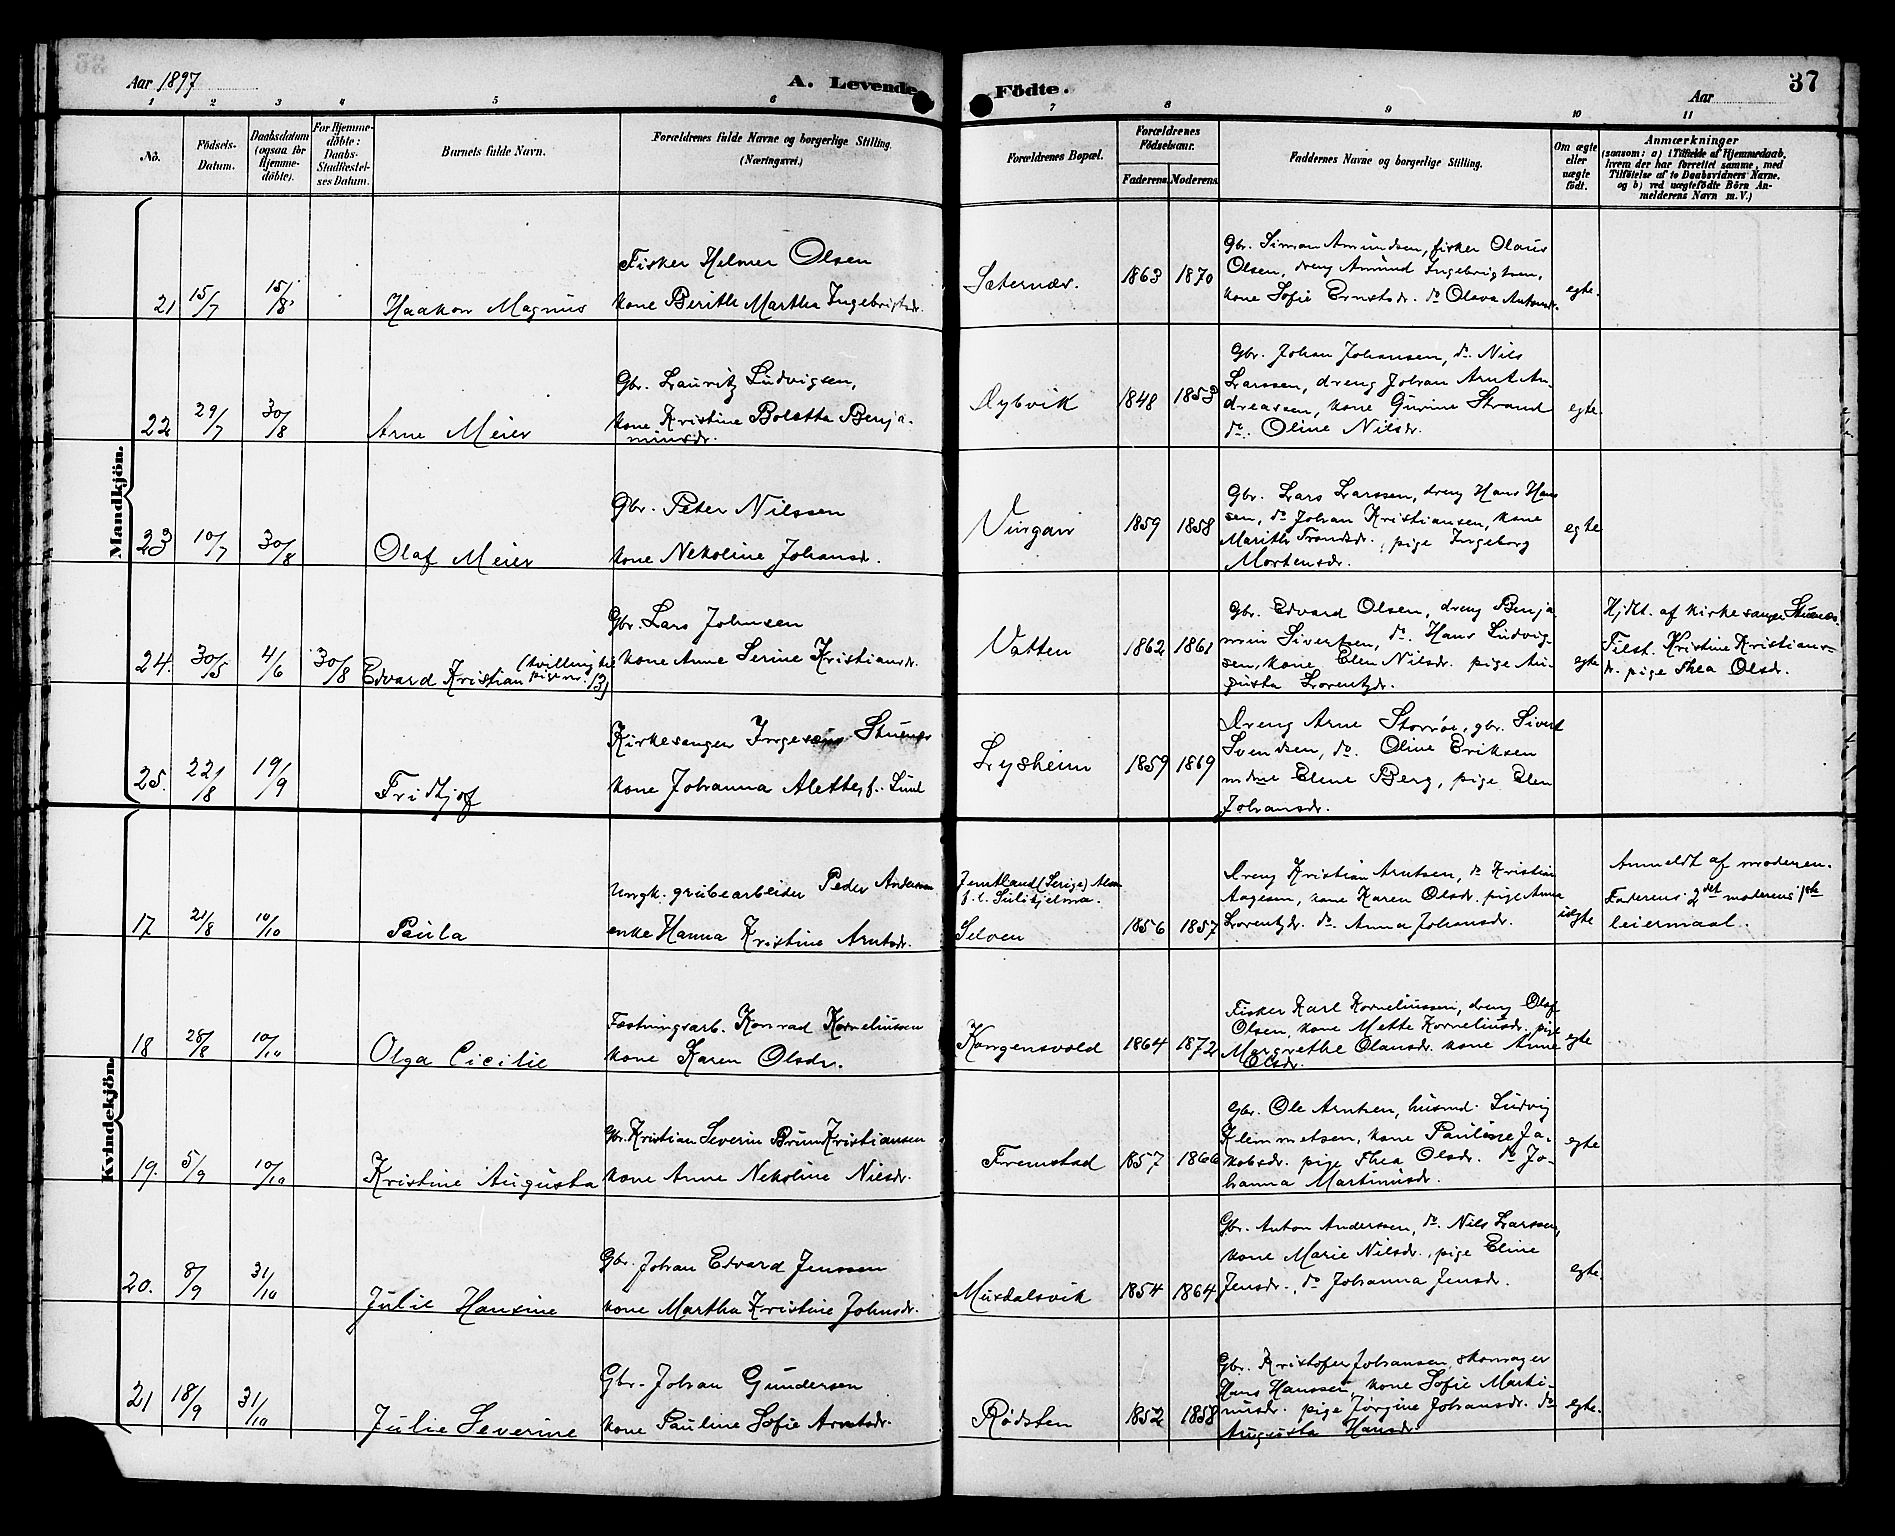 Aar 1897
A. Levende Födte.
Aar
37
1 2 3 4 5 6 7 8 9 10 11
No.
Födsels-
Datum.
Daabsdatum
(ogsaa for
Hjemme-
döbte).
For Hjemme-
döbte:
Daabs-
Stadfæstel-
ses Datum.
Barnets fulde Navn.
Forældrenes fulde Navne og borgerlige Stilling.
(Næringsvei.)
Forældrenes Bopæl.
Forældrenes
Födselsaar.
Faderens. Moderens.
Faddernes Navne og borgerlige Stilling.
Om ægte
eller
uægte
födt.
Anmærkninger
(saasom: a) i Tilfælde af Hjemmedaab,
hvem der har forrettet samme, med
Tilföielse af to Daabsvidners Navne.
og b) ved uægtefödte Börn An-
melderens Navn m. V.)
Mandkjön.
21 15/7 15/8 Haakon Magnus
Fisker Helmer Olsen
kone Berith Martha Ingebrigtsdr.
Sæternæs. 1863 1870
Gbr. Simon Amundsen, fisker Olaus
Olsen, dreng Amund Ingebrigtsen,
kone Sofie Ernstsdr. do Olava Antonsdr.
egte.
22 29/7 30/8 Arne Meier
Gbr. Lauritz Ludvigsen,
kone Kristine Boletta Benja-
minsdr.
Dybvik 1848 1853
Gbr. Johan Johansen, do. Nils
Larssen, dreng Johan Arnt An-
dreassen, kone Gurine Strand
do. Oline Nilsdr.
egte.
23 10/7 30/8 Olaf Meier
Gbr. Peter Nilssen
kone Nekoline Johansdr.
1859 1858
Gbr. Lars Larssen, dreng Hans Han
sen, do Johan Kristiansen, kone
Marith Trondsdr., pige Ingeborg
Mortensdr.
egte
24. 30/5 4/6 30/8 Edvard Kristian (tvilling til
pige nr. 13)
Gbr. Lars Johnsen
kone Anne Serine Kristiansdr.
Vatten 1862 1861
Gbr. Edvard Olsen, dreng Benja
min Sivertsen, do. Hans Ludvig-
sen, kone Elen Nilsdr. pige Au-
gusta Lorentzdr.
egte
Hjdbt. af kirkesanger Stuenes.
Tilst. Kristine Kristians-
dr. pige Thea Olsdr.
25. 22/8 19/9 Fridtjof
Kirkesanger Stuenes
kone Johanna Alette, f. Lund
Lysheim 1859 1869
Dreng Arne Storrøe, gbr. Sivert
Svendsen, do. Oline Eriksen
mdme Eline Berg, pige Elen
Johansdr.
Kvindekjön.
17 21/8 10/10 Paula
Ungk. grubearbeider Peder Andersen
enke Hanna Kristine Arntsdr.
Jemtland (Serige)
f. t. Sulitjelma.
Selven 1856 1857
Dreng Kristian Arntsen, do Kristian
Aagesen, kone Karen Olsdr. pige Anna
Lorentzdr. do. Anna Johansdr.
uegte
Anmeldt af moderen.
Faderens 2det moderens 1ste
leiermaal.
18 28/8 10/10 Olga Cicilie
Fæstningsarb. Konrad Korneliussen
kone Karen Olsdr.
Kongensvold 1864 1872
Fisker Karl Korneliussen, dreng Olaf
Olsen, kone Mette Korneliusdr. pige
Margrethe Olausdr. kone Anne
Olsdr.
egte
19. 5/9 10/10 Kristine Augusta
Gbr. Kristian Severin Brun Kristiansen
kone Anne Nekoline Nilsdr.
Fremstad 1857 1866
Gbr. Ole Arntsen, husmd. Ludvig
Klemmetsen, kone Pauline Ja-
kobsdr. pige Thea Olsdr. do Jo-
hanna Martinusdr.
egte
20. 8/9 31/10 Julie Hansine
Gbr. Johan Edvard Jenssen
kone Martha Kristine Johnsdr.
Mosdalsvik 1854 1864
Gbr. Anton Anderssen, do. Nils Larssen,
kone Marie Nilsdr., pige Eline
Jensdr., do Johanna Jensdr.
egte.
21 18/9 31/10 Julie Severine
Gbr. Johan Gundersen
kone Pauline Sofie Arntsdr.
Rödsten 1852 1858
Gbr. Kristofer Johansen, skomager
Hans Hanssen, kone Sofie Marti-
nusdr. pige Jørgine Johansdr. do
Augusta Hansdr.
egte.